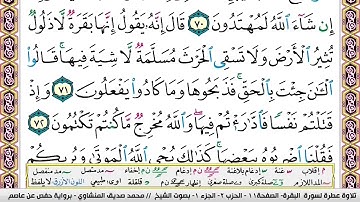 إِن شَآءَ ٱللَّهُ لَمُهْتَدُونَ ٧٠ قَالَ إِنَّهُۥ يَقُولُ إِنَّهَا بَقَرَةٌ لَّا ذَلُولٌ
تُثِيرُ ٱلْأَرْضَ وَلَا تَسْقِى ٱلْحَرْثَ مُسَلَّمَةٌ لَّا شِيَةَ فِيهَا ۚ قَالُوا۟
ٱلْـَٰٔنَ جِئْتَ بِٱلْحَقِّ ۚ فَذَبَحُوهَا وَمَا كَادُوا۟ يَفْعَلُونَ ٧١ وَإِذْ
قَتَلْتُمْ نَفْسًا فَٱدَّٰرَْٰٔتُمْ فِيهَا ۖ وَٱللَّهُ مُخْرِجٌ مَّا كُنتُمْ تَكْتُمُونَ ٧٢
فَقُلْنَا ٱضْرِبُوهُ بِبَعْضِهَا ۚ كَذَٰلِكَ يُحْىِ ٱللَّهُ ٱلْمَوْتَىٰ وَيُرِيكُمْ
تلاوة عطرة لسورة البقرة - الصفحة ١١ - الحزب ٢ - الجزء ١ - بصوت الشيخ // محمد صديق المنشاوي - برواية حفص عن عاصم